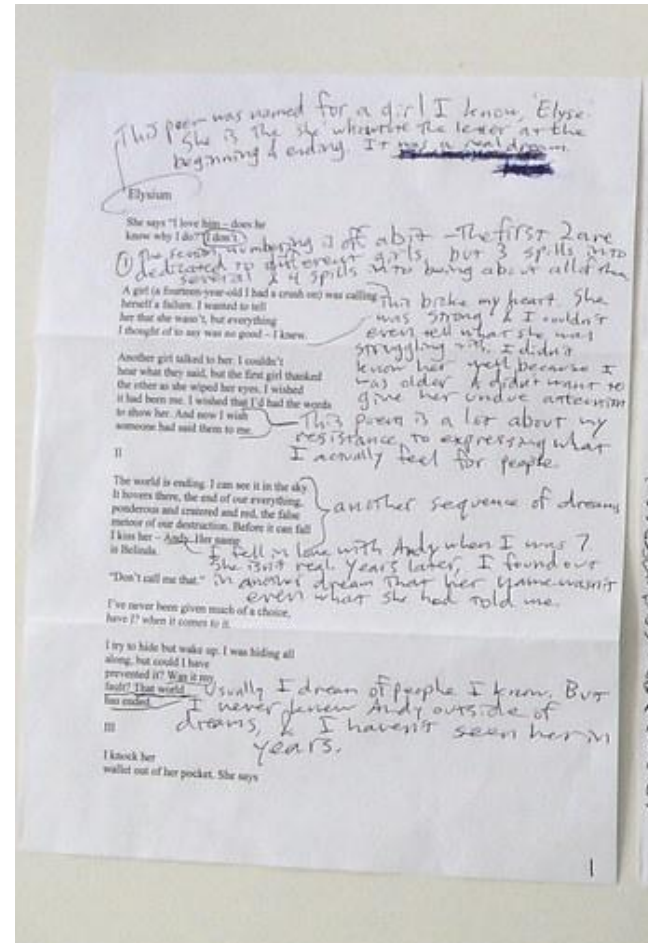 This poem was named for a girl I know, Elyse.
She is the she who wrote the letter at the
beginning & ending. It was a real dream
Elysium
She says "I love him – does he
know why I do? I don't.
① The section numbering is off a bit – The first 2 are
dedicated to different girls, but 3 spills into
several & 4 spills into being about all of them
A girl (a fourteen-year-old I had a crush on) was calling
herself a failure. I wanted to tell
her that she wasn't, but everything
I thought of to say was no good – I knew.
This broke my heart. She
was strong & I couldn't
even tell what she was
struggling with. I didn't
know her well because I
was older & didn't want to
give her undue attention
Another girl talked to her. I couldn't
hear what they said, but the first girl thanked
the other as she wiped her eyes. I wished
it had been me. I wished that I'd had the words
to show her. And now I wish
someone had said them to me.
This poem is a lot about my
resistance to expressing what
I actually feel for people.
II
The world is ending. I can see it in the sky
It hovers there, the end of our everything,
ponderous and cratered and red, the false
meteor of our destruction. Before it can fall
I kiss her – Andy. Her name
is Belinda.
another sequence of dreams
I fell in love with Andy when I was 7
She isn't real. Years later, I found out
in another dream that her name wasn't
even what she had told me.
"Don't call me that."
I've never been given much of a choice,
have I? when it comes to it.
I try to hide but wake up. I was hiding all
along, but could I have
prevented it? Was it my
fault? That world
has ended.
Usually I dream of people I know. But
I never knew Andy outside of
dreams, & I haven't seen her in
years.
III
I knock her
wallet out of her pocket. She says
1